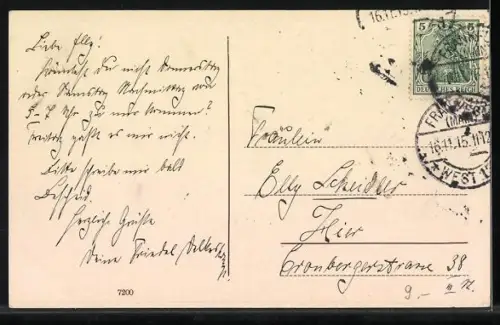 Liebe Elly!
Könntest du nicht Donnerstag
oder Samstag Nachmittag von
5-7 Uhr zu mir kommen?
Freitag paßt es mir nicht.
Bitte schreibe mir bald
Bescheid.
Herzliche Grüße
Deine Friedel
7200
16.11.15.
5
DEUTSCHES REICH
16.11.15.
WEST 13
Fräulein
Elly Scheidler
Hier
Cronbergerstrasse 38
II r.
9.-